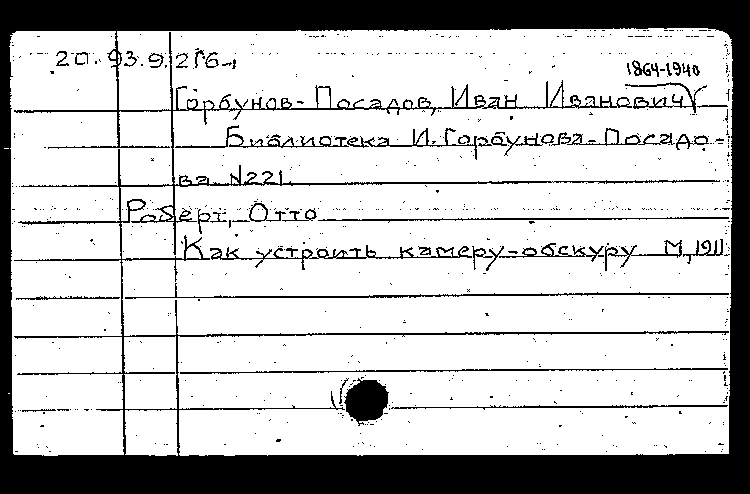 20.93.9.216-1
1864-1940
Горбунов-Посадов, Иван Иванович
Библиотека И. Горбунова-Посадо-
ва №221.
Роберт, Отто
Как устроить камеру-обскуру М, 1911